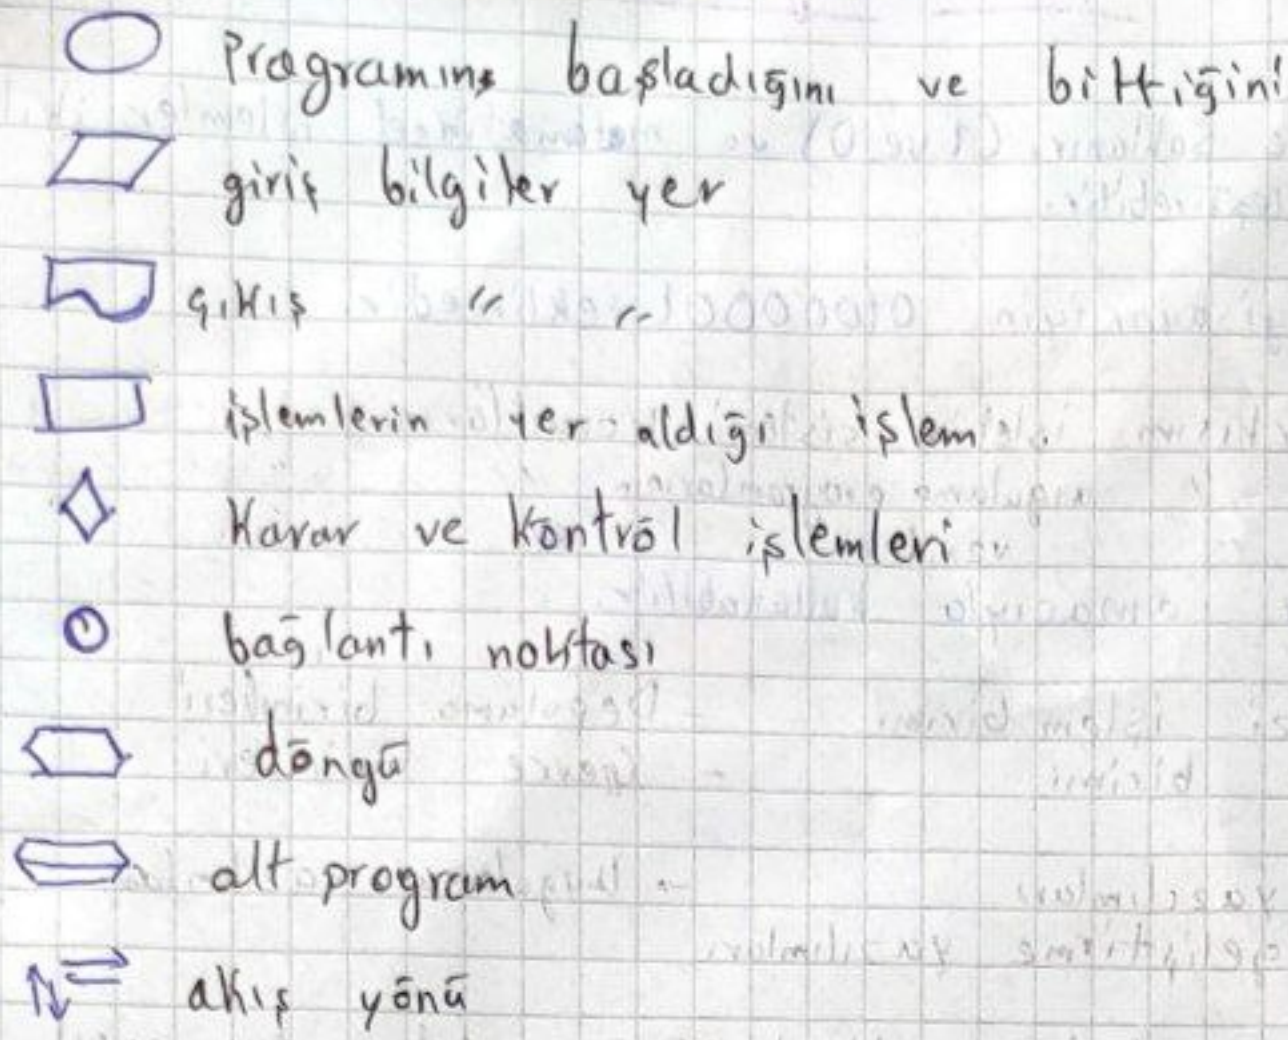 Programını başladığını ve bittiğini
giriş bilgiler yer
çıkış " "
işlemlerin yer aldığı işlem
Karar ve kontröl işlemleri
bağlantı noktası
döngü
alt program
akış yönü